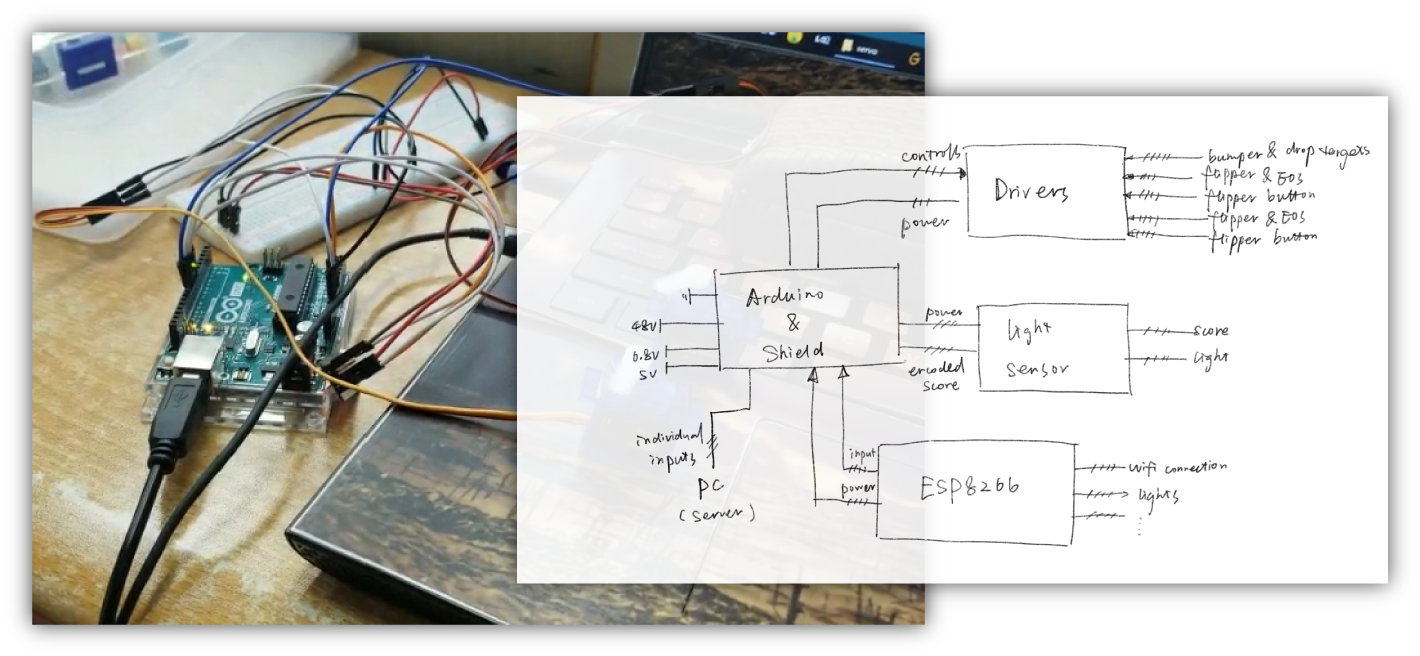 servo
G
ARDUINO
controls
power
Drivers
bumper & drop targets
flipper & EOS
flipper button
flipper & EOS
flipper button
Arduino
&
Shield
48V
6.8V
5V
power
encoded
score
light
sensor
score
light
individual
inputs
PC
(server)
input
power
ESP8266
wifi connection
lights
⋮